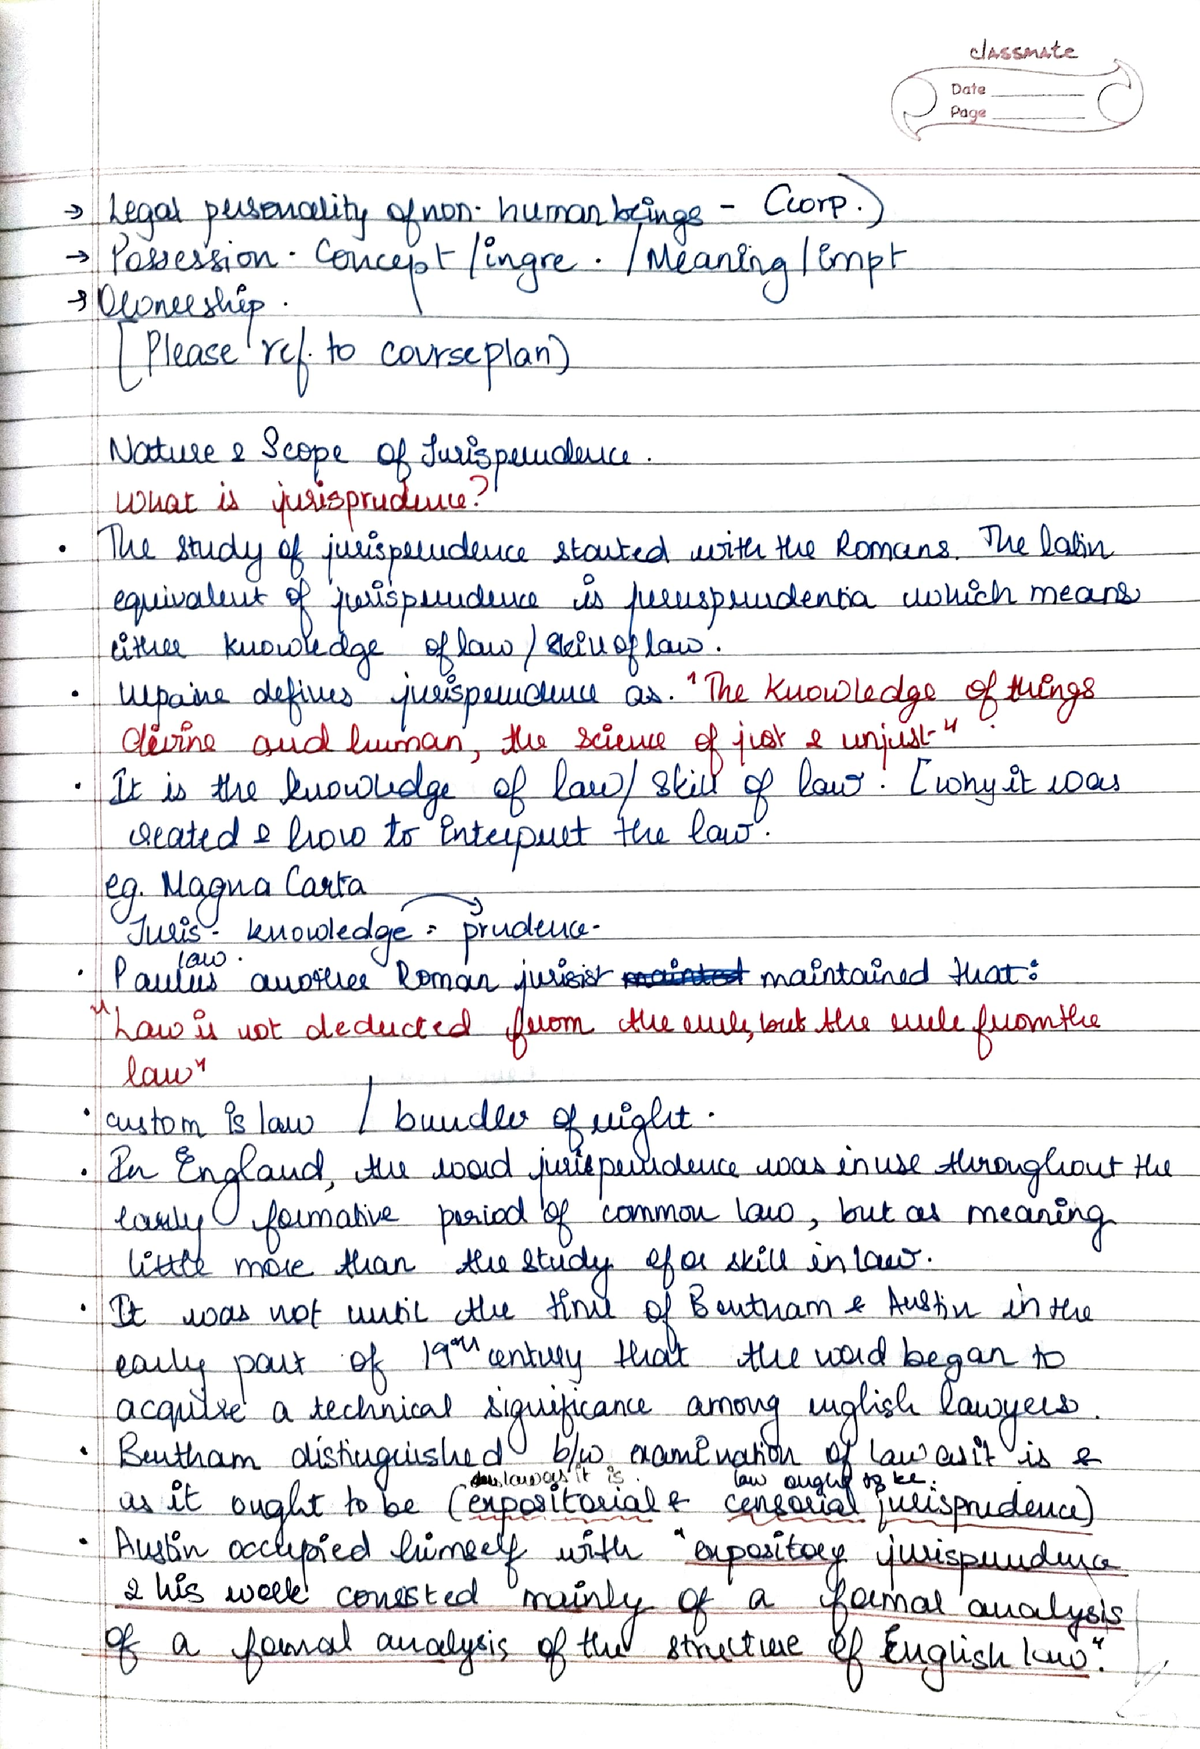 classmate
Date
Page
→ Legal personality of non-human beings - (Corp.)
→ Possession. Concept/ingre. /Meaning/impt
→ Ownership.
[Please ref. to course plan)
Nature & Scope of Jurisprudence.
What is jurisprudence?
• The study of jurisprudence started with the Romans. The latin
equivalent of jurisprudence is jurusprudentia which means
either knowledge of law / skill of law.
• defines jurisprudence as. "The knowledge of things
divine and human, the science of just & unjust"
• It is the knowledge of law/ skill of law. [why it was
created & how to interpret the law.
eg. Magna Carta
Juris - knowledge = prudence-
law.
• Paulus another Roman jurist mainted maintained that:
"Law is not deducted from the rule, but the rule from the
law"
• custom is law / bundles of right.
• In England, the word jurisprudence was in use throughout the
early formative period of common law, but as meaning
little more than the study of or skill in law.
• It was not until the time of Bentham & Austin in the
early part of 19th century that the word began to
acquire a technical significance among english lawyers.
• Bentham distinguished b/w examination of law as it is &
law as it is. law ought to be.
as it ought to be (expositorial & censorial jurisprudence)
• Austin occupied himself with "expository jurisprudence
& his work consisted mainly of a formal analysis
of a formal analysis of the structure of English law".